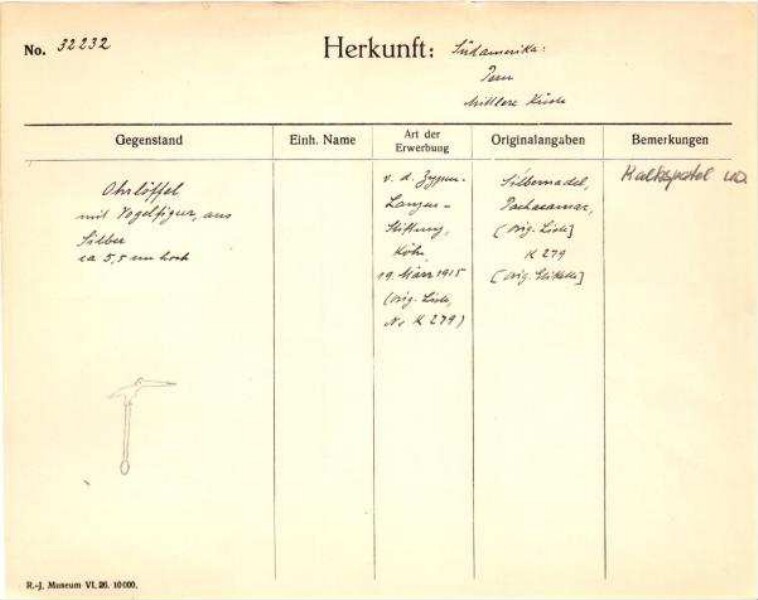 No. 32232
Herkunft: Südamerika:
Peru
Mittlere Küste
Gegenstand
Einh. Name
Art der
Erwerbung
Originalangaben
Bemerkungen
Ohrlöffel
mit Vogelfigur, aus
Silber
ca 5,5 cm hoch
v. d. Zypen-
Stiftung,
Köln
19. März 1915
(orig. Liste,
No K 279)
Silbernadel,
Pachacamac,
[orig. Liste]
K 279
[orig. Etikette]
Kalkspatel
R.-J. Museum VI. 26. 10000.